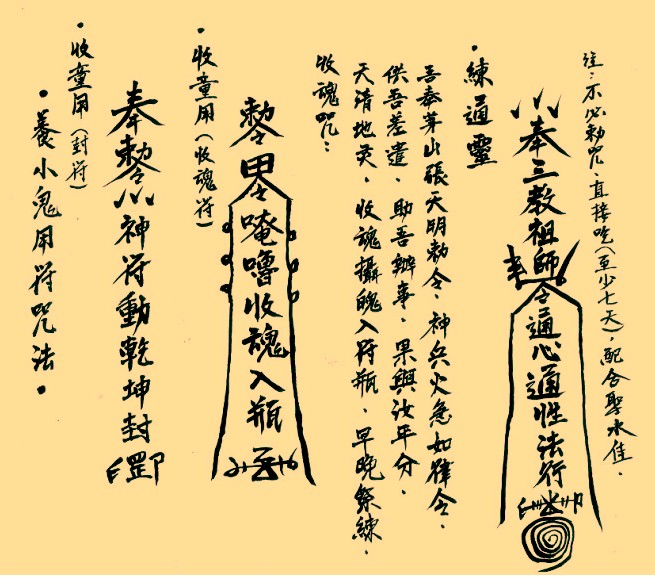 註：不必勅咒，直接吃（至少七天），配合聖水佳。
奉三教祖師令通心通性法行
・練通靈
吾奉茅山張天明勅令，神兵火急如律令。
供吾差遣，助吾辦事，果與汝年分，
天清地灵，收魂攝魄入符瓶，早晚祭練，
收魂咒：
勅令
唵嚕收魂入瓶
・收童用（收魂符）
奉勅令
神符動乾坤封罡
・收童用（封符）
・養小鬼用符咒法・